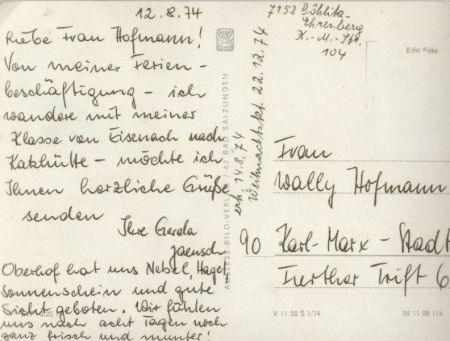 12.8.74
Liebe Frau Hofmann!
Von meiner Ferien-
beschäftigung - ich
wandere mit meiner
Klasse von Eisenach nach
Katzhütte - möchte ich
Ihnen herzliche Grüße
senden
Ihre Gerda
Jaensch
Oberhof hat uns Nebel, Hagel
Sonnenschein und gute
Sicht geboten. Wir fühlen
uns nach acht Tagen noch
ganz frisch und munter!
BILD-VERL 62 BAD SALZUNGEN
erh. 14.8.74
Weihnachtskt. 22.12.74
7152 Böhlitz-
Ehrenberg
K.-M.-Str.
104
Echt Foto
Frau
Wally Hofmann
90 Karl-Marx-Stadt
Further Trift 6
V 11 50 S 1/74
09 11 08 114